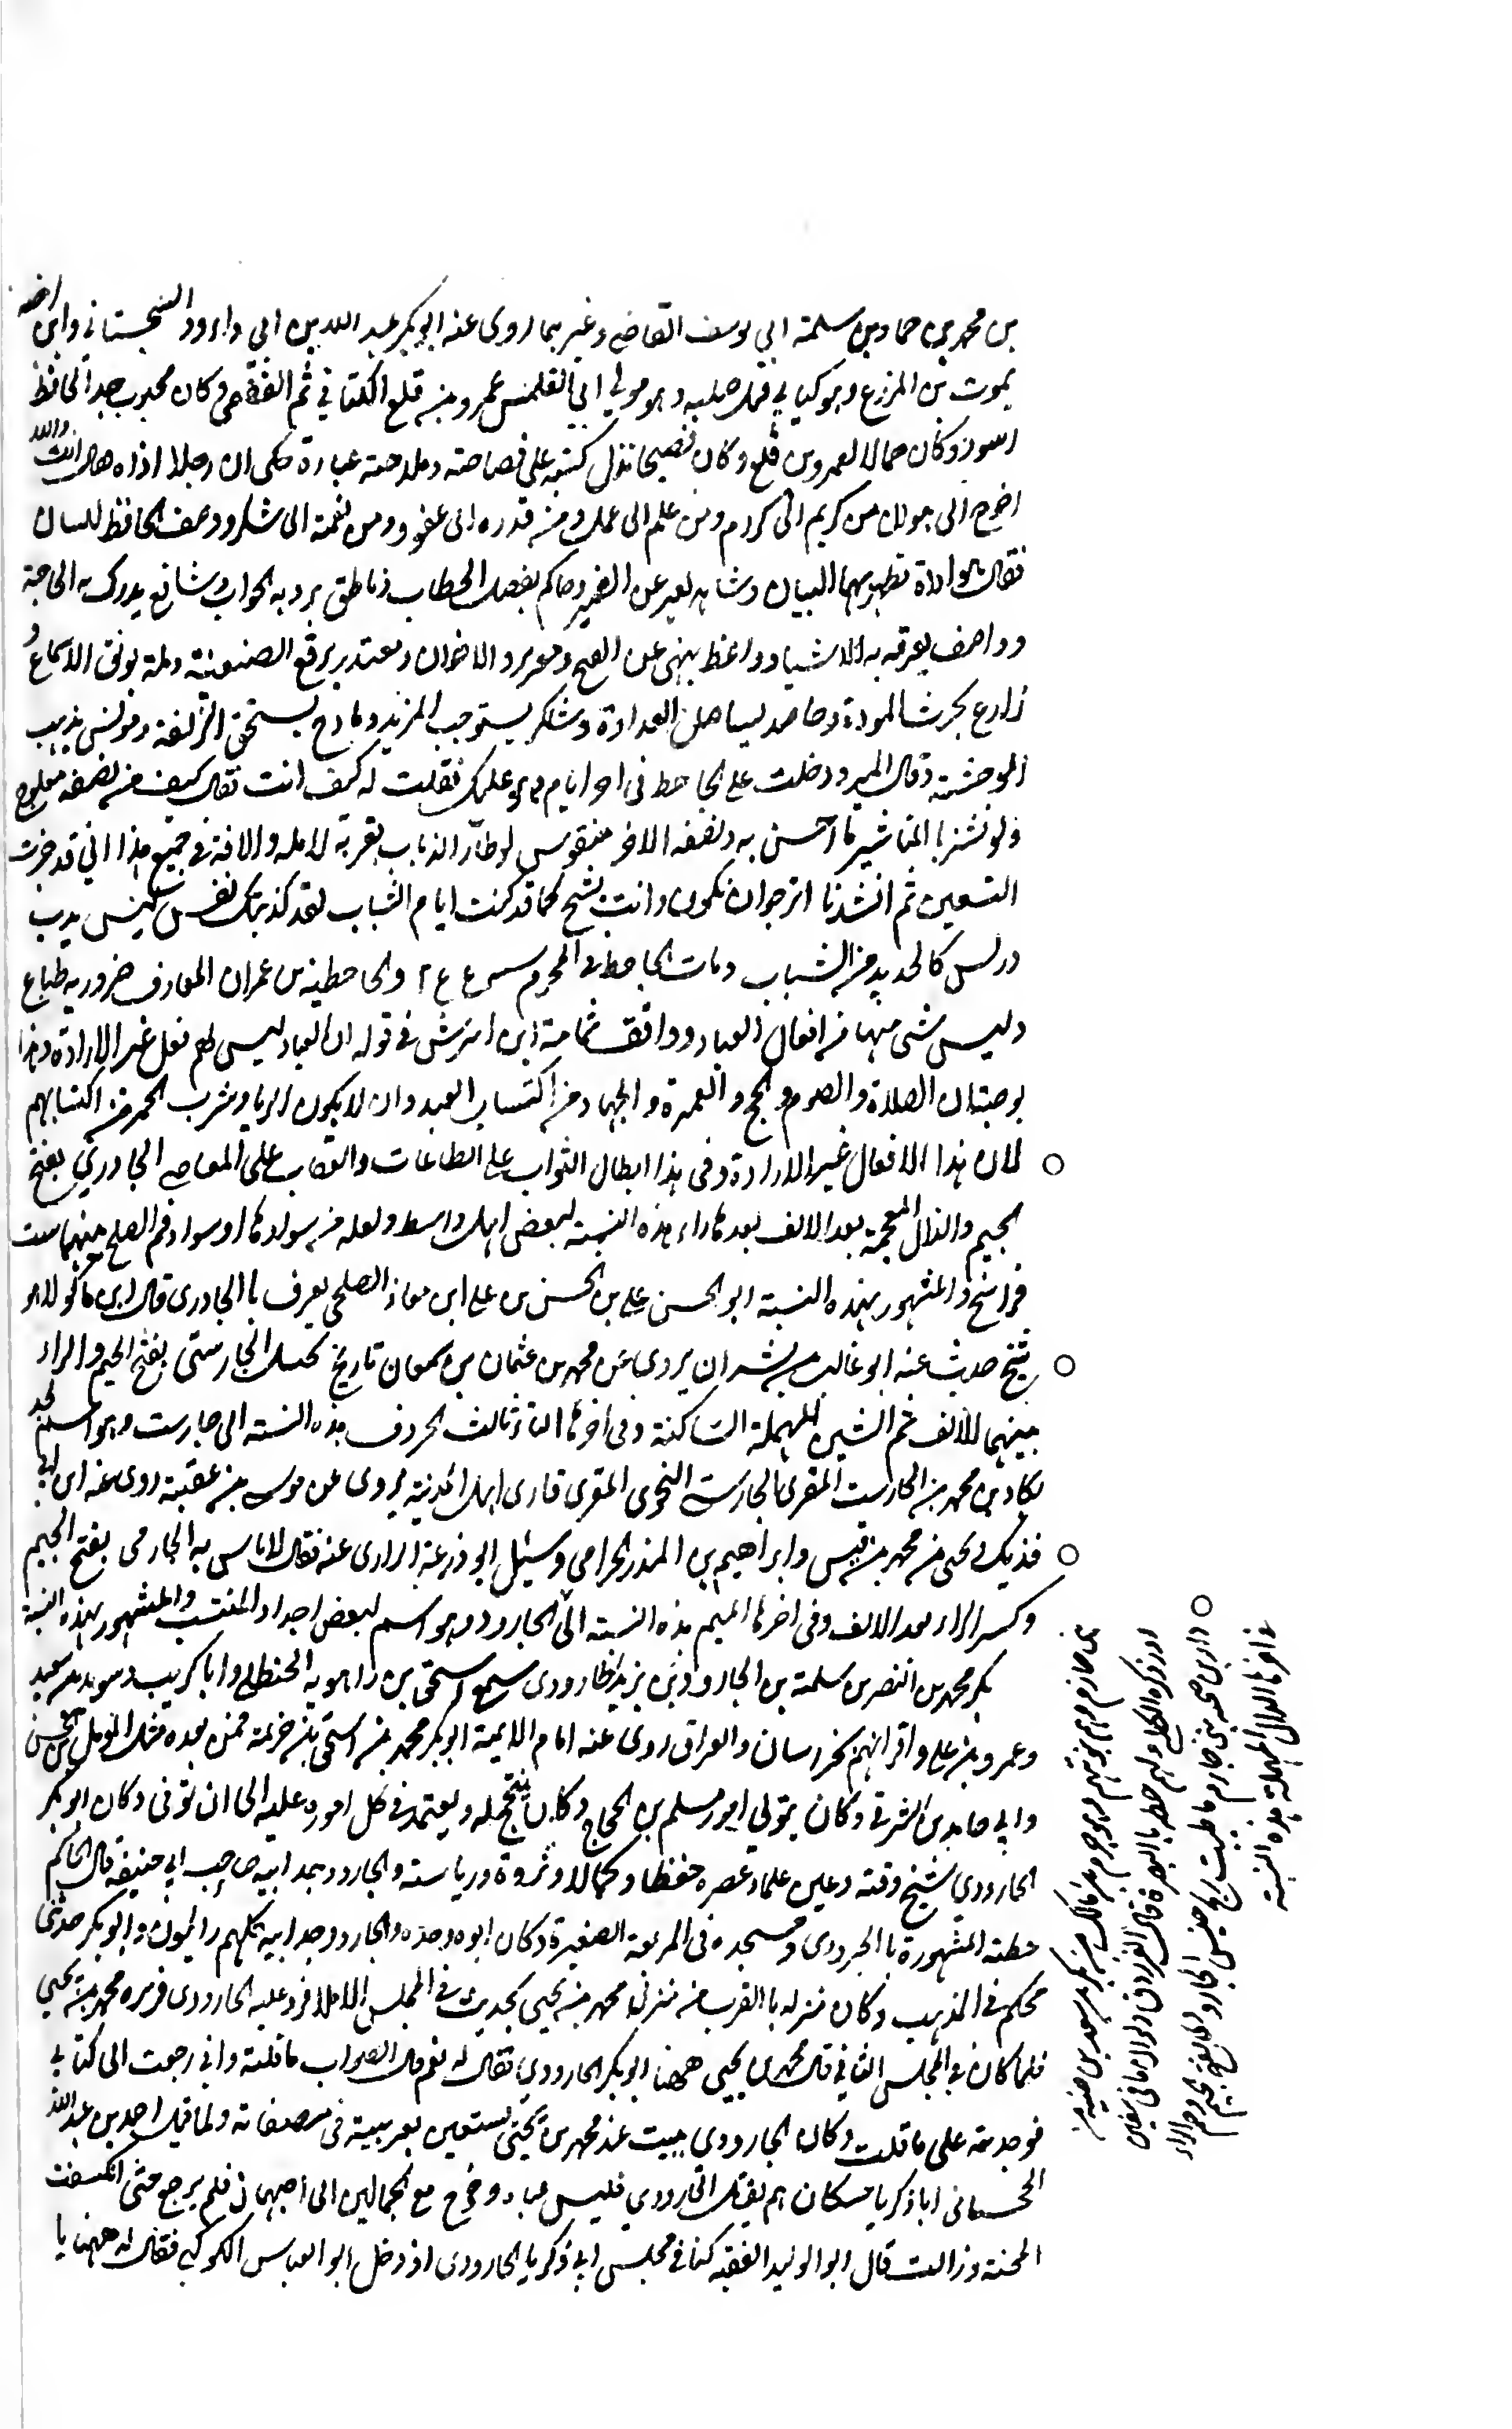 بن محمد بن حماد بن سلمة ابي يوسف القاضي وغيرهما روى عنه ابو بكر عبد الله بن ابي داوود السجستاني وابن اخته
يموت بن المزرع وهو كناني قيل صليبه وهو مولي ابي القلمس عمرو بن قلع الكناني ثم الفقمي وكان محبوب جد الجاحظ
اسود وكان جمالا لعمرو بن قلع وكان فصيحا تدل كتبه على فصاحته وملاحة عبارة حكى ان رجلا اذاه فقال انت والله
احوج الى هوان من كريم الى كرام ومن علم الى عمل ومن قدره الى عفو ومن نعمة الى شكر ووصف الجاحظ اللسان
فقال هو اداة تظهر بها البيان وشاهد يعبر عن الضمير وحاكم يفصل الخطاب وناطق يرد به الجواب وشافع يدرك به الحاجة
وواصف يعرف به الاشياء وواعظ ينهى عن القبيح ومعز يرد الاخوان ومعتذر يرفع الضغينة وملة يونق الاسماع و
زارع يحرث المودة وحاصد يستاصل العداوة وشاكر يستوجب المزيد ومادح يستحق الزلفة ومونس يذهب
الوحشة وقال المبرد دخلت على الجاحظ في اخر ايامه وهو عليل فقلت له كيف انت فقال كيف من نصفه مفلوج
ولو نشر بالمناشير ما احسن به ونصفه الاخر منقوس لو طار الذباب بقربه لالمه والافة في جميع هذا اني قد جزت
التسعين ثم انشدنا اترجو ان تكون وانت شيخ كما قد كنت ايام الشباب لقد كذبتك نفس ليس
دريس كالجديد من الشباب ومات الجاحظ في المحرم والجاحظية بن عمران المعارف ضرورية طباع
وليس شى منها من افعال العباد ووافق ثمامة ابن اشرش في قوله ان العباد ليس لهم فعل غير الارادة وهذا
يوجب ان الصلاة والصوم والحج والعمرة والجهاد من اكتساب العبد وان لا يكون الزنا وشرب الخمر من اكتسابهم
لان هذا الافعال غير الارادة وفى هذا ابطال الثواب على الطاعات والعقاب على المعاصي الجاذري بفتح
الجيم والذال المعجمة بعد الالف بعدها راء هذه النسبة لبعض اهل واسط ولعله من سوادها او سواد فم الصلح
فراسخ والمشهور بهذه النسبة ابو الحسن علي بن الحسن بن علي ابن معاذ الصلحي يعرف با الجاذرى قال ابن ماكولا هو
شيخ حدث عنه ابو غالب بن بشران يروى عن محمد بن عثمان بن سمعان تاريخ بحشل الجارستى بفتح الجيم والراء
بينهما الالف ثم السين المهملة الساكنة وفى اخرها التاء ثالث الحروف هذه النسبة الى جارست وهو اسم لجد
بكار بن محمد بن الجارست المقرئ الجارستى النحوى المقرى قارى اهل المدينة يروى عن موسى بن عقبة روى عنه ابن ابي
فديك ويحى بن محمد بن قيس وابراهيم بن المنذر الحزامي وسئل ابو زرعة الرازى عنه فقال لا باس به الجارمى بفتح الجيم
وكسر الراء بعد الالف وفى اخرها الميم هذه النسبة الى الجارود وهو اسم لبعض اجداد المنتسب والمشهور بهذه النسبة
بكر محمد بن النضر بن سلمة بن الجارود بن يزيد الجارودى سمع اسحق بن راهويه الحنظلي وابا كريب وسويد بن سعيد
وعمرو بن على واقرانهم بخراسان والعراق روى عنه امام الايمة ابو بكر محمد بن اسحق بن خزيمة فمن بعده مثل المومل بن الحسن
وابي حامد بن الشرقي وكان يتولي امور مسلم بن الحجاج وكان ينتجح له ويعتمد في كل اموره عليه الى ان توفى وكان ابو بكر
الجارودي شيخ وقته وعين علماء عصره حفظا وكمالا وثروة ورياسته والجارود جد ابيه صاحب ابي حنيفة قال الحاكم
خطته المشهورة بالجرودى ومسجده فى المربعة الصغيرة وكان ابوه وجده والجارود وجد ابيه كلهم رائيون وابو بكر حدثنى
محكم في المذهب وكان منزله با القرب من منزل محمد بن يحيى يحديث في المجلس الاملا فرد عليه الجارودى فزبره محمد بن يحيى
فلما كان في المجلس الثاني قال محمد بن يحيى ههنا ابو بكر الجارودي فقال له نعم قال الصواب ما قلته واني رجعت الى كتابي
فوجدته على ما قلت وكان الجارودى يبيت عند محمد بن يحيى يستعين بعربيته فى مصنفاته ولما قيل احمد بن عبد الله
الخجستانى ابا زكريا حسكان هم بقتل الجارودي فلبس عباء وخرج مع الجمالين الى اصبهان فلم يرجع حتى انكشفت
المحنة وزالت قال ابو الوليد الفقيه كنا في مجلس ابي زكريا الجارودى اذ دخل ابو العباس الكوكبي فقال له ههنا يا